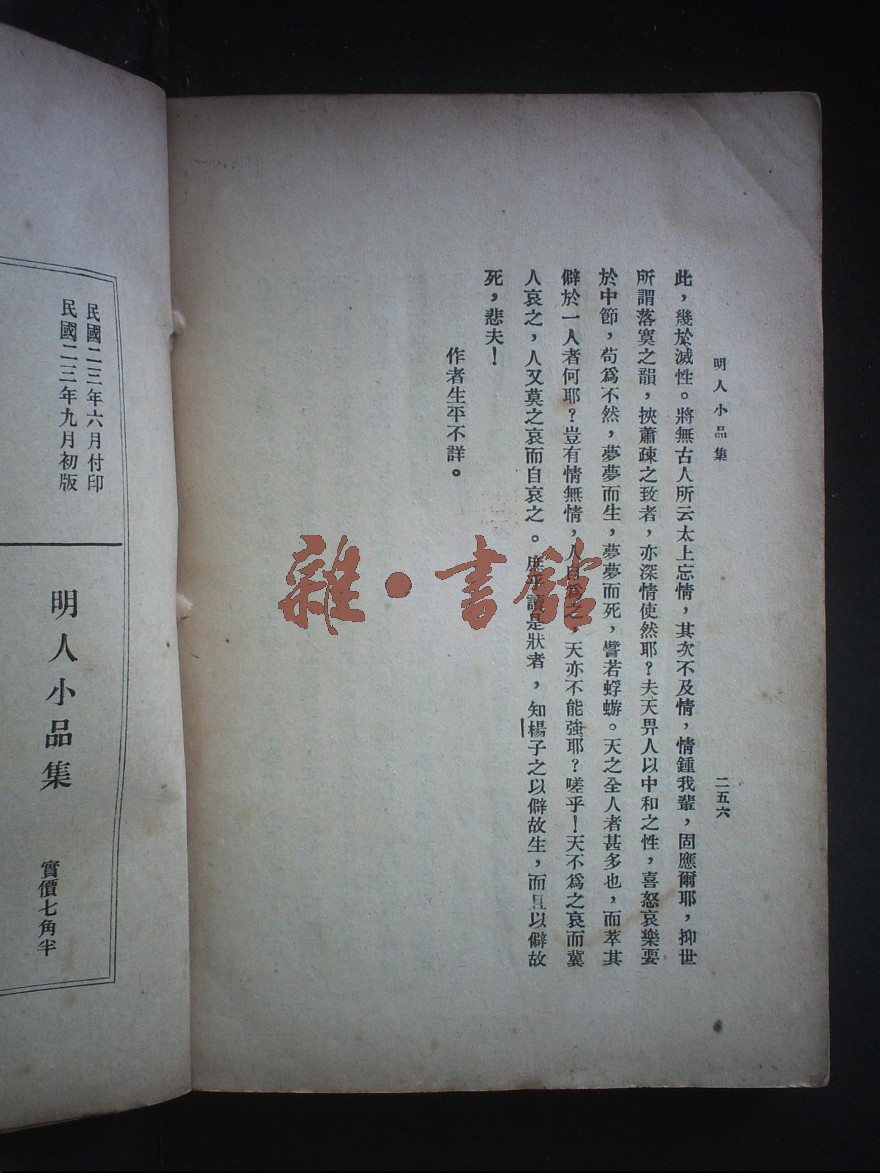 明人小品集
二五六
此，幾於滅性。將無古人所云太上忘情，其次不及情，情鍾我輩，固應爾耶，抑世
所謂落寞之韻，挾蕭疎之致者，亦深情使然耶？夫天畀人以中和之性，喜怒哀樂要
於中節，苟爲不然，夢夢而生，夢夢而死，譬若蜉蝣。天之全人者甚多也，而萃其
僻於一人者何耶？豈有情無情，人自爲之，天亦不能強耶？嗟乎！天不爲之哀而冀
人哀之，人又莫之哀而自哀之。庶乎讀是狀者，知楊子之以僻故生，而且以僻故
死，悲夫！
作者生平不詳。
雜·書館
民國二三年六月付印
民國二三年九月初版
明人小品集
實價七角半